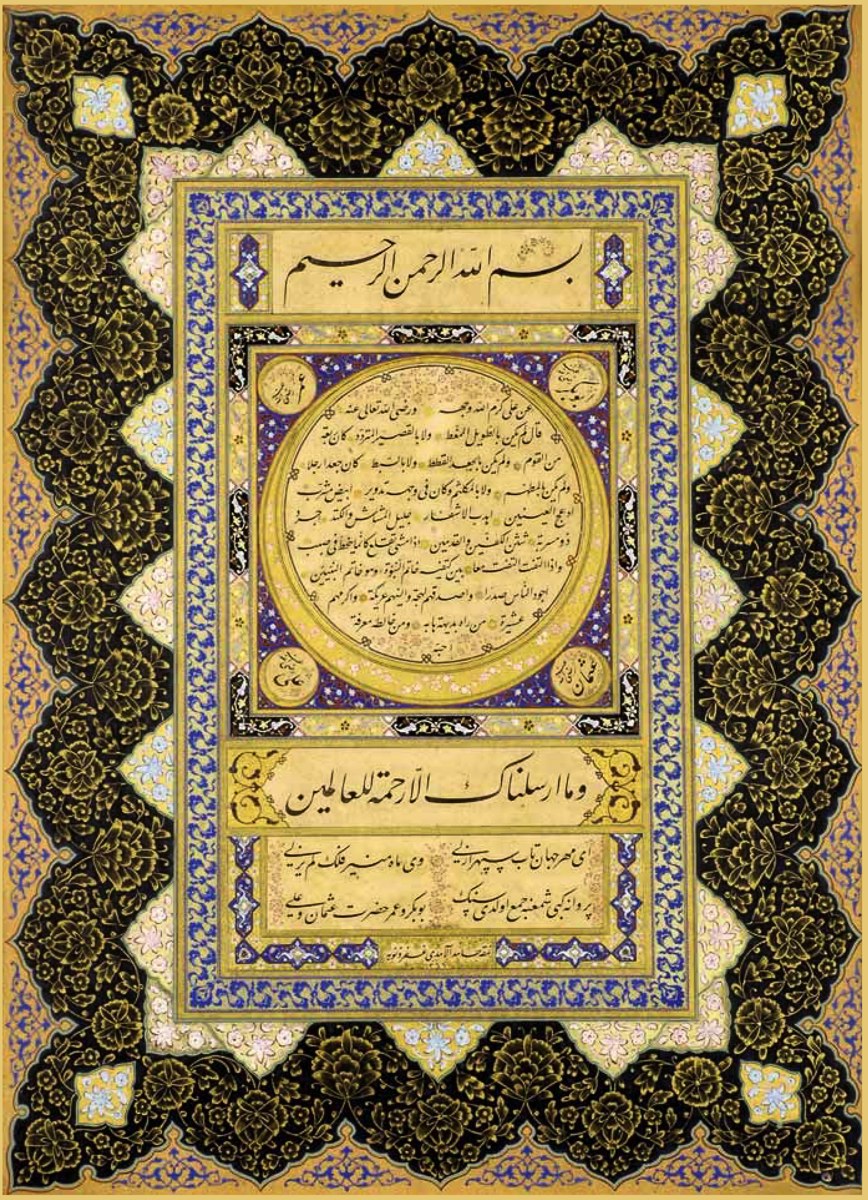 بسم الله الرحمن الرحيم
عمر
عن على كرم الله وجهه ورضى الله تعالى عنه
قال لم يكن بالطويل الممغط ولا بالقصير المتردد كان ربعة
من القوم ولم يكن بالجعد القطط ولا بالسبط كان جعدا رجلا
ولم يكن بالمطهم ولا بالمكلثم وكان فى وجهه تدوير ابيض مشرب
ادعج العينين اهدب الاشفار جليل المشاش والكتد اجرد
ذو مسربة شثن الكفين والقدمين اذا مشى تقلع كانما ينحط فى صبب
واذا التفت التفت معا بين كتفيه خاتم النبوة وهو خاتم النبيين
اجود الناس صدرا واصدقهم لهجة والينهم عريكة واكرمهم
عشيرة من راه بديهة هابه ومن خالطه معرفة
احبه
عثمان
على
وما ارسلناك الا رحمة للعالمين
اى مهر جهان تاب سپهر ازلى وى ماه منير فلك لم يزلى
پروانه كبى شمعنه جمع اولدى سنك بوبكر و عمر حضرت عثمان و على
نمقه حامد الآمدى غفر ذنوبه